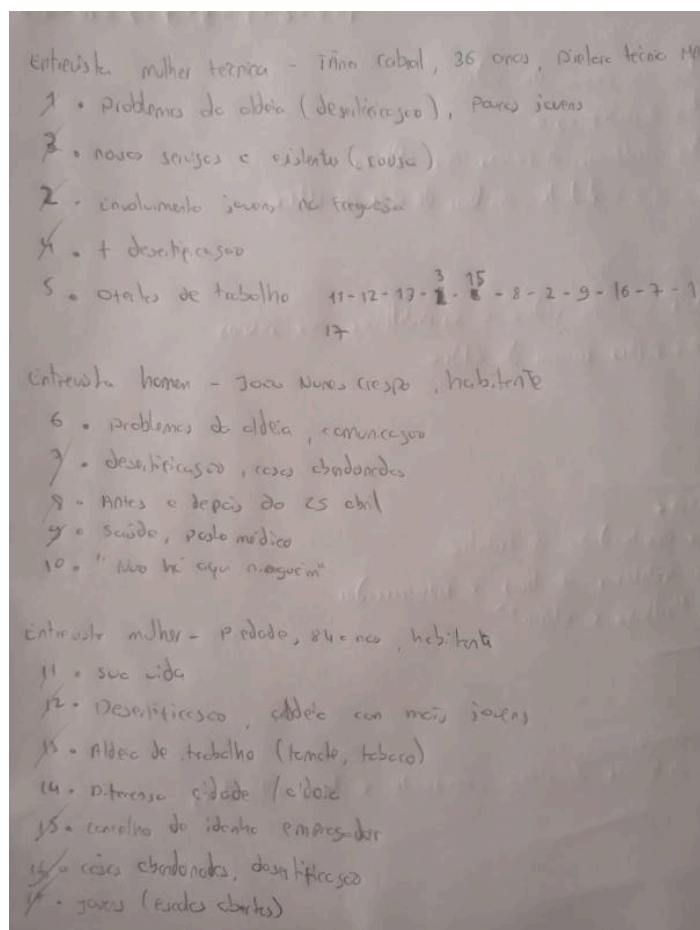 Entrevista mulher técnica - Cabral, 36 anos, técnic
1 • problemas da aldeia (desertificasão), Poucos jovens
3 • novos serviços e existente (
2 • envolvimento jovens na freguesia
4 • + desertificasão
5 • ofertas de trabalho 11-12-13- 3 - 15 - 8 - 2 - 9 - 16 - 7 - 1
17
Entrevista homen - Joao Nunes Crespo, habitente
6 • problemas da aldeia, comunicasão
7 • desertificasão, casas abandonadas
8 • Antes e depois do 25 abril
9 • saúde, posto médico
10 • "Nao há aqui ninguém"
Entrevista mulher - Piedade, 84 anos, habitente
11 • sua vida
12 • Desertificasão, aldeia con mais jovens
13 • Aldeia de trabalho (tomate, tabaco)
14 • Diferensa cidade /
15 • concelho de idanha empregador
16 • casas abandonadas, desertificasão
17 • jovens (